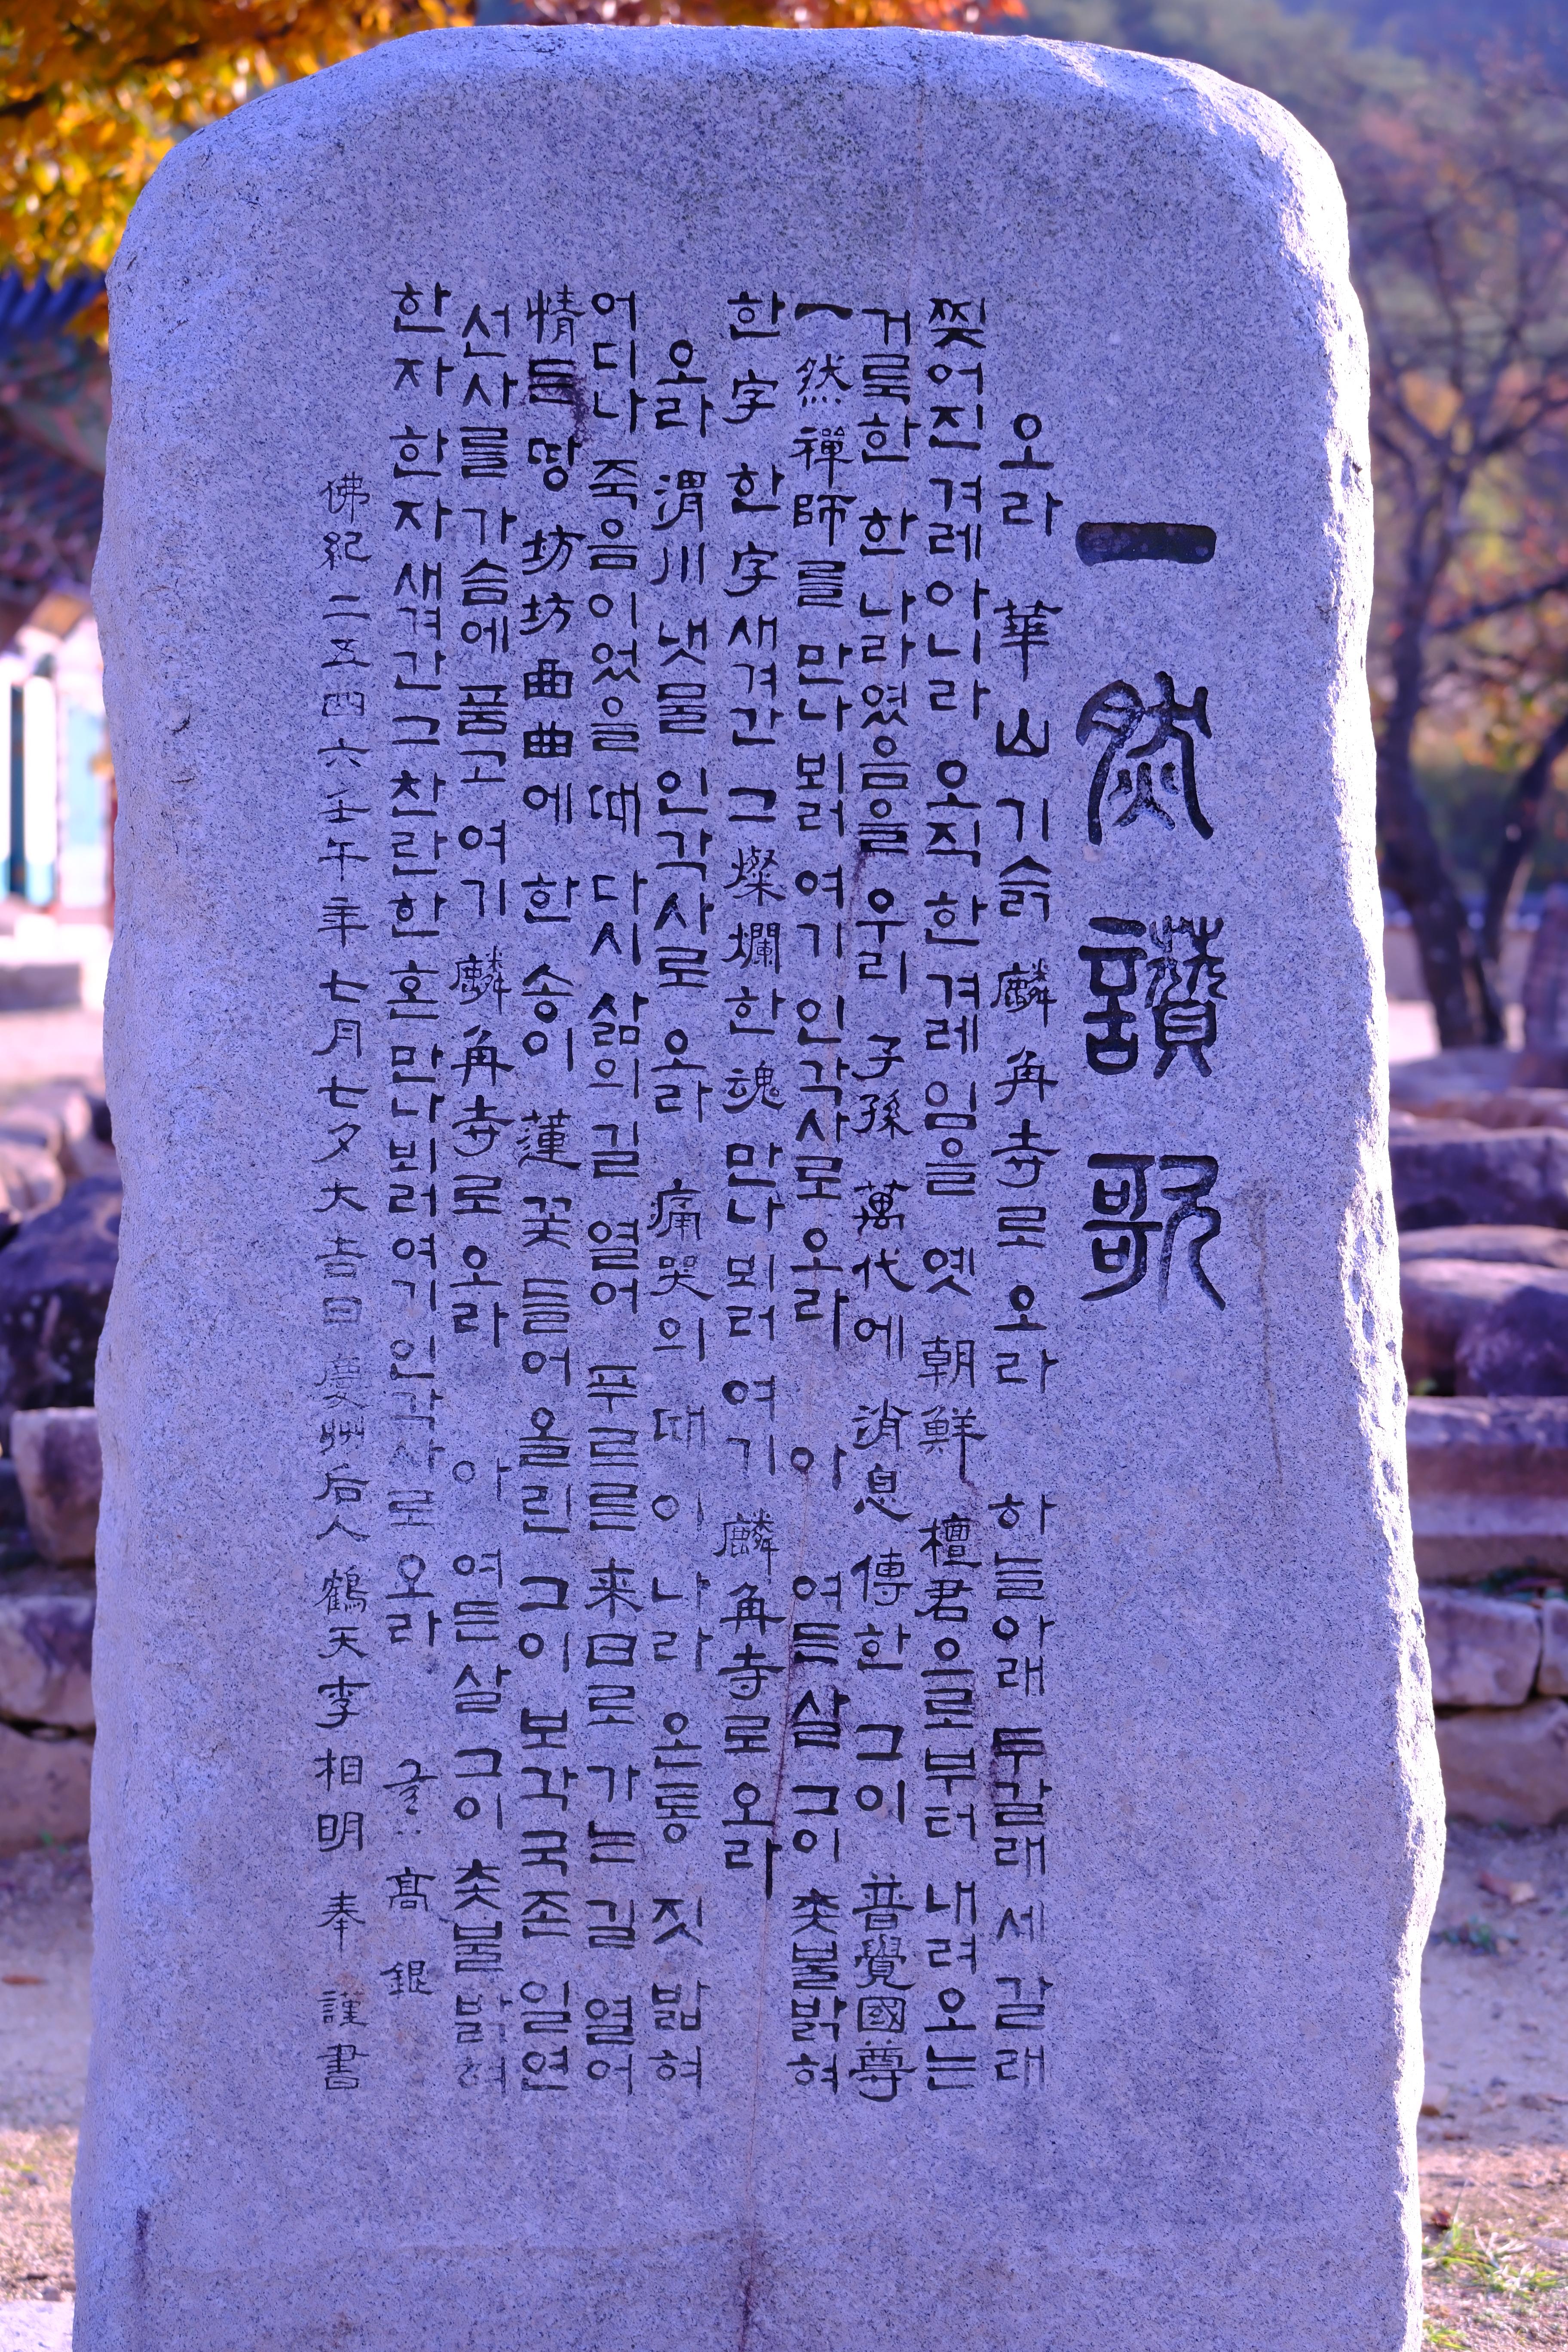 一然讚歌
오라 華山 기슭 麟角寺로 오라 하늘아래 두갈래 세 갈래
찢어진 겨레아니라 오직 한 겨레임을 옛 朝鮮 檀君으로부터 내려오는
거룩한 한 나라였음을 우리 子孫 萬代에 消息 傳한 그이 普覺國尊
一然禪師를 만나뵈러 여기 인각사로 오라 아 여든 살 그이 촛불 밝혀
한 字 한 字 새겨간 그 燦爛한 魂 만나뵈러 여기 麟角寺로 오라
오라 渭川 냇물 인각사로 오라 痛哭의 때 이 나라 온통 짓밟혀
어디나 죽음이었을 때 다시 삶의 길 열어 푸르른 来日로 가는 길 열어
情든 땅 坊坊曲曲에 한 송이 蓮꽃 들어 올린 그이 보각국존 일연
선사를 가슴에 품고 여기 麟角寺로 오라 아 여든 살 그이 촛불 밝혀
한 자 한 자 새겨간 그 찬란한 혼 만나뵈러 여기 인각사로 오라 글: 高銀
佛紀 二五四六 壬午年 七月 七夕 大吉日 慶州后人 鶴天 李相明 奉 謹書